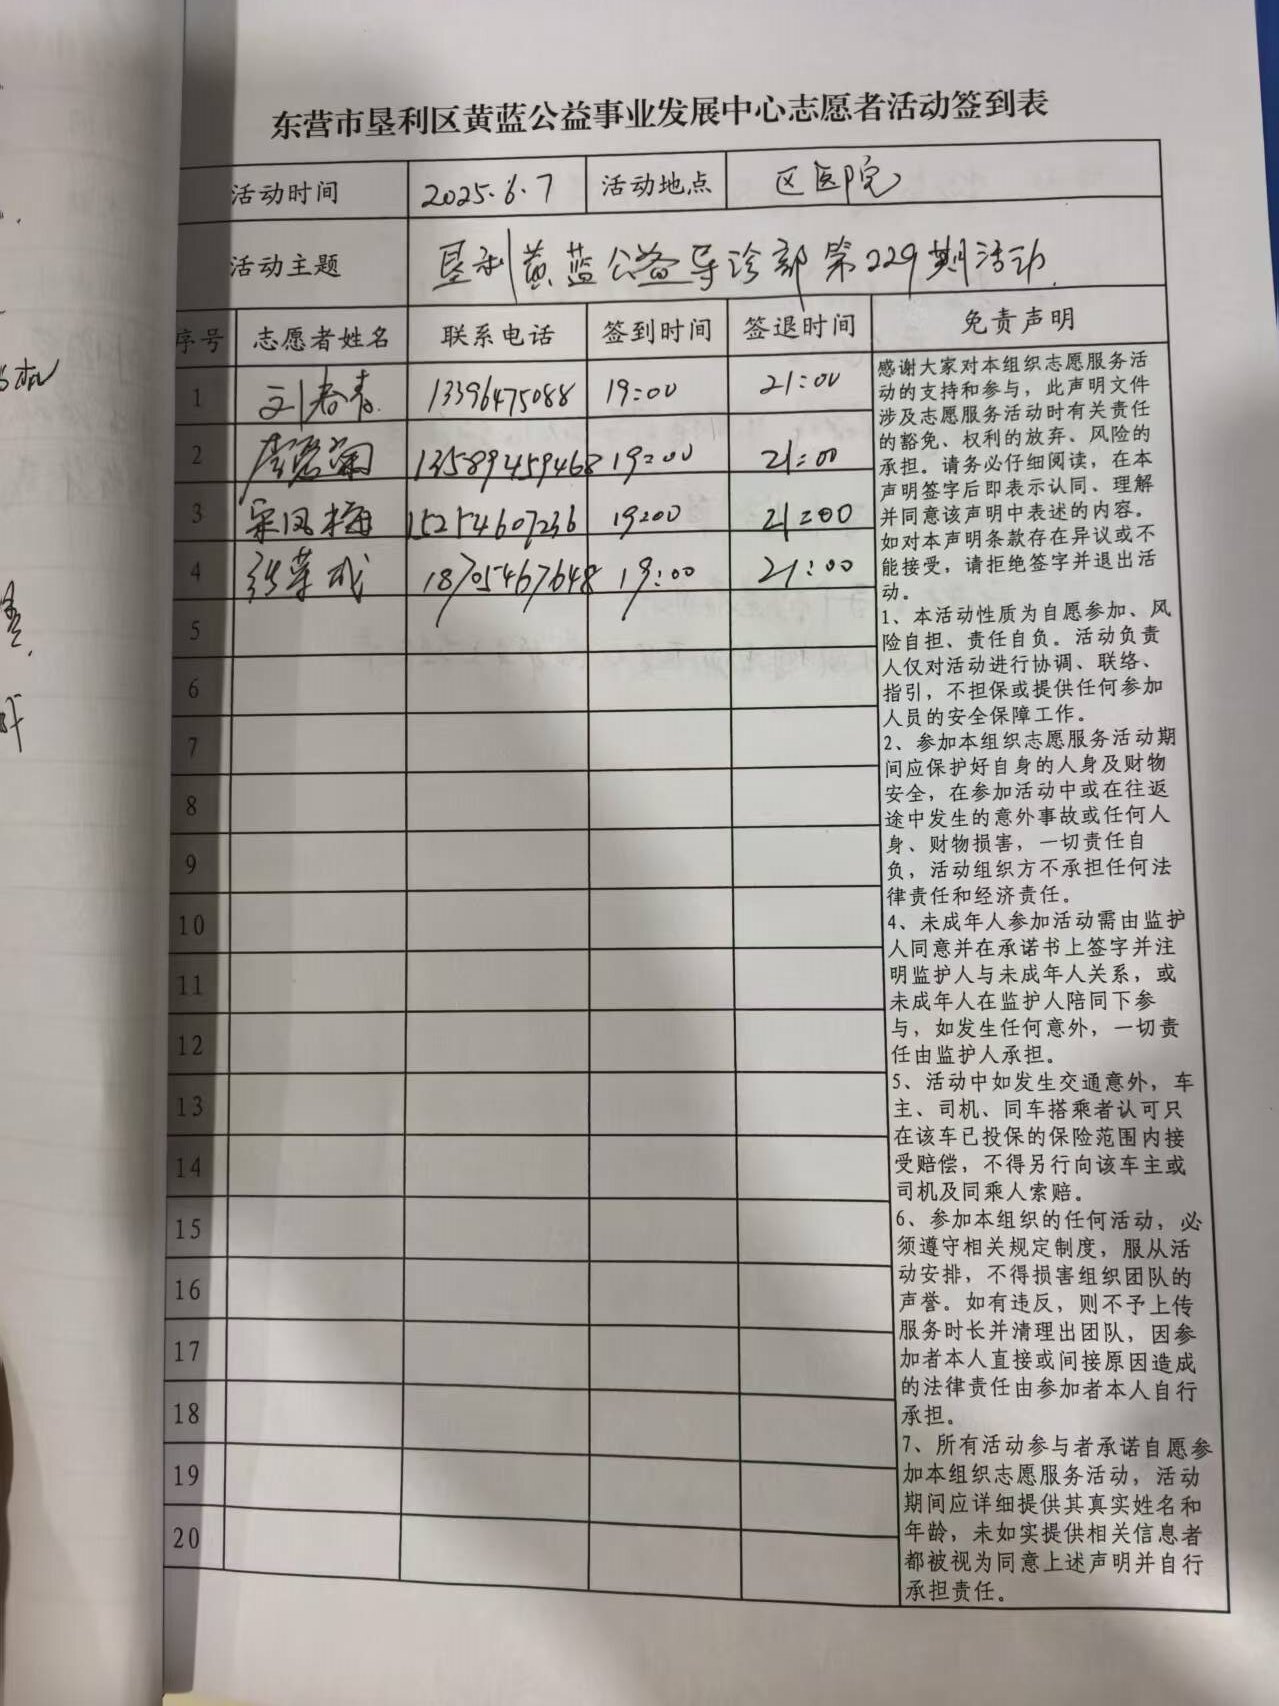 东营市垦利区黄蓝公益事业发展中心志愿者活动签到表
活动时间 2025.6.7 活动地点 区医院
活动主题 垦利黄蓝公益导诊部第229期活动.
序号 志愿者姓名 联系电话 签到时间 签退时间 免责声明
1 刘春青 13396475088 19:00 21:00
2 13589459468 19:00 21:00
3 宋凤梅 15254607236 19:00 21:00
4 张荣成 18705467648 19:00 21:00
5
6
7
8
9
10
11
12
13
14
15
16
17
18
19
20
感谢大家对本组织志愿服务活
动的支持和参与，此声明文件
涉及志愿服务活动时有关责任
的豁免、权利的放弃、风险的
承担。请务必仔细阅读，在本
声明签字后即表示认同、理解
并同意该声明中表述的内容。
如对本声明条款存在异议或不
能接受，请拒绝签字并退出活
动。
1、本活动性质为自愿参加、风
险自担、责任自负。活动负责
人仅对活动进行协调、联络、
指引，不担保或提供任何参加
人员的安全保障工作。
2、参加本组织志愿服务活动期
间应保护好自身的人身及财物
安全，在参加活动中或在往返
途中发生的意外事故或任何人
身、财物损害，一切责任自
负，活动组织方不承担任何法
律责任和经济责任。
4、未成年人参加活动需由监护
人同意并在承诺书上签字并注
明监护人与未成年人关系，或
未成年人在监护人陪同下参
与，如发生任何意外，一切责
任由监护人承担。
5、活动中如发生交通意外，车
主、司机、同车搭乘者认可只
在该车已投保的保险范围内接
受赔偿，不得另行向该车主或
司机及同乘人索赔。
6、参加本组织的任何活动，必
须遵守相关规定制度，服从活
动安排，不得损害组织团队的
声誉。如有违反，则不予上传
服务时长并清理出团队，因参
加者本人直接或间接原因造成
的法律责任由参加者本人自行
承担。
7、所有活动参与者承诺自愿参
加本组织志愿服务活动，活动
期间应详细提供其真实姓名和
年龄，未如实提供相关信息者
都被视为同意上述声明并自行
承担责任。